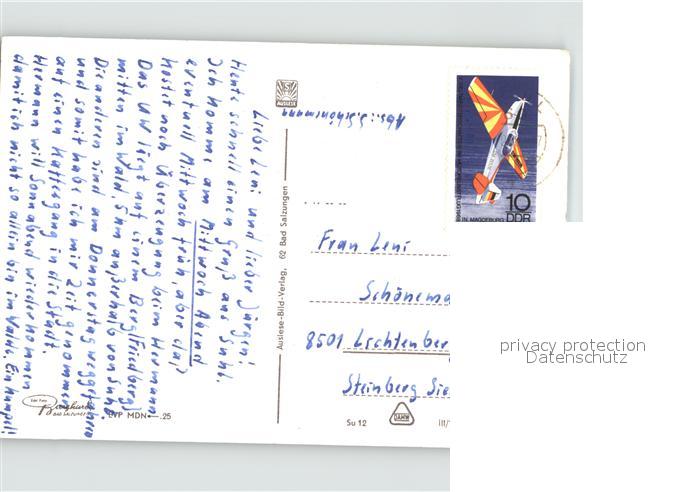 Liebe Leni und lieber Jürgen!
Heute schnell einen Gruß aus Suhl.
Ich komme am Mittwoch Abend
eventuell Mittwoch früh, aber da?
kostet noch Überzeugung beim Hermann
Das UW liegt auf einem Berg (Friedberg)
mitten im Wald 5 km außerhalb von Suhl
Die anderen sind am Donnerstag weggefahren
und somit habe ich mir Zeit genommen
auf einen Kaffeegang in die Stadt.
Hermann will Sonnabend wieder kommen
damit ich nicht so allein bin im Walde.
Abs.: S. Schönemann
AUSLESE
Auslese-Bild-Verlag, 62 Bad Salzungen
10
DDR
IN MAGDEBURG
Frau Leni
Schönema
8501 Lichtenber
Steinberg Sie
BAD SALZUNGEN
EVP MDN -.25
Su 12
III/
privacy protection
Datenschutz